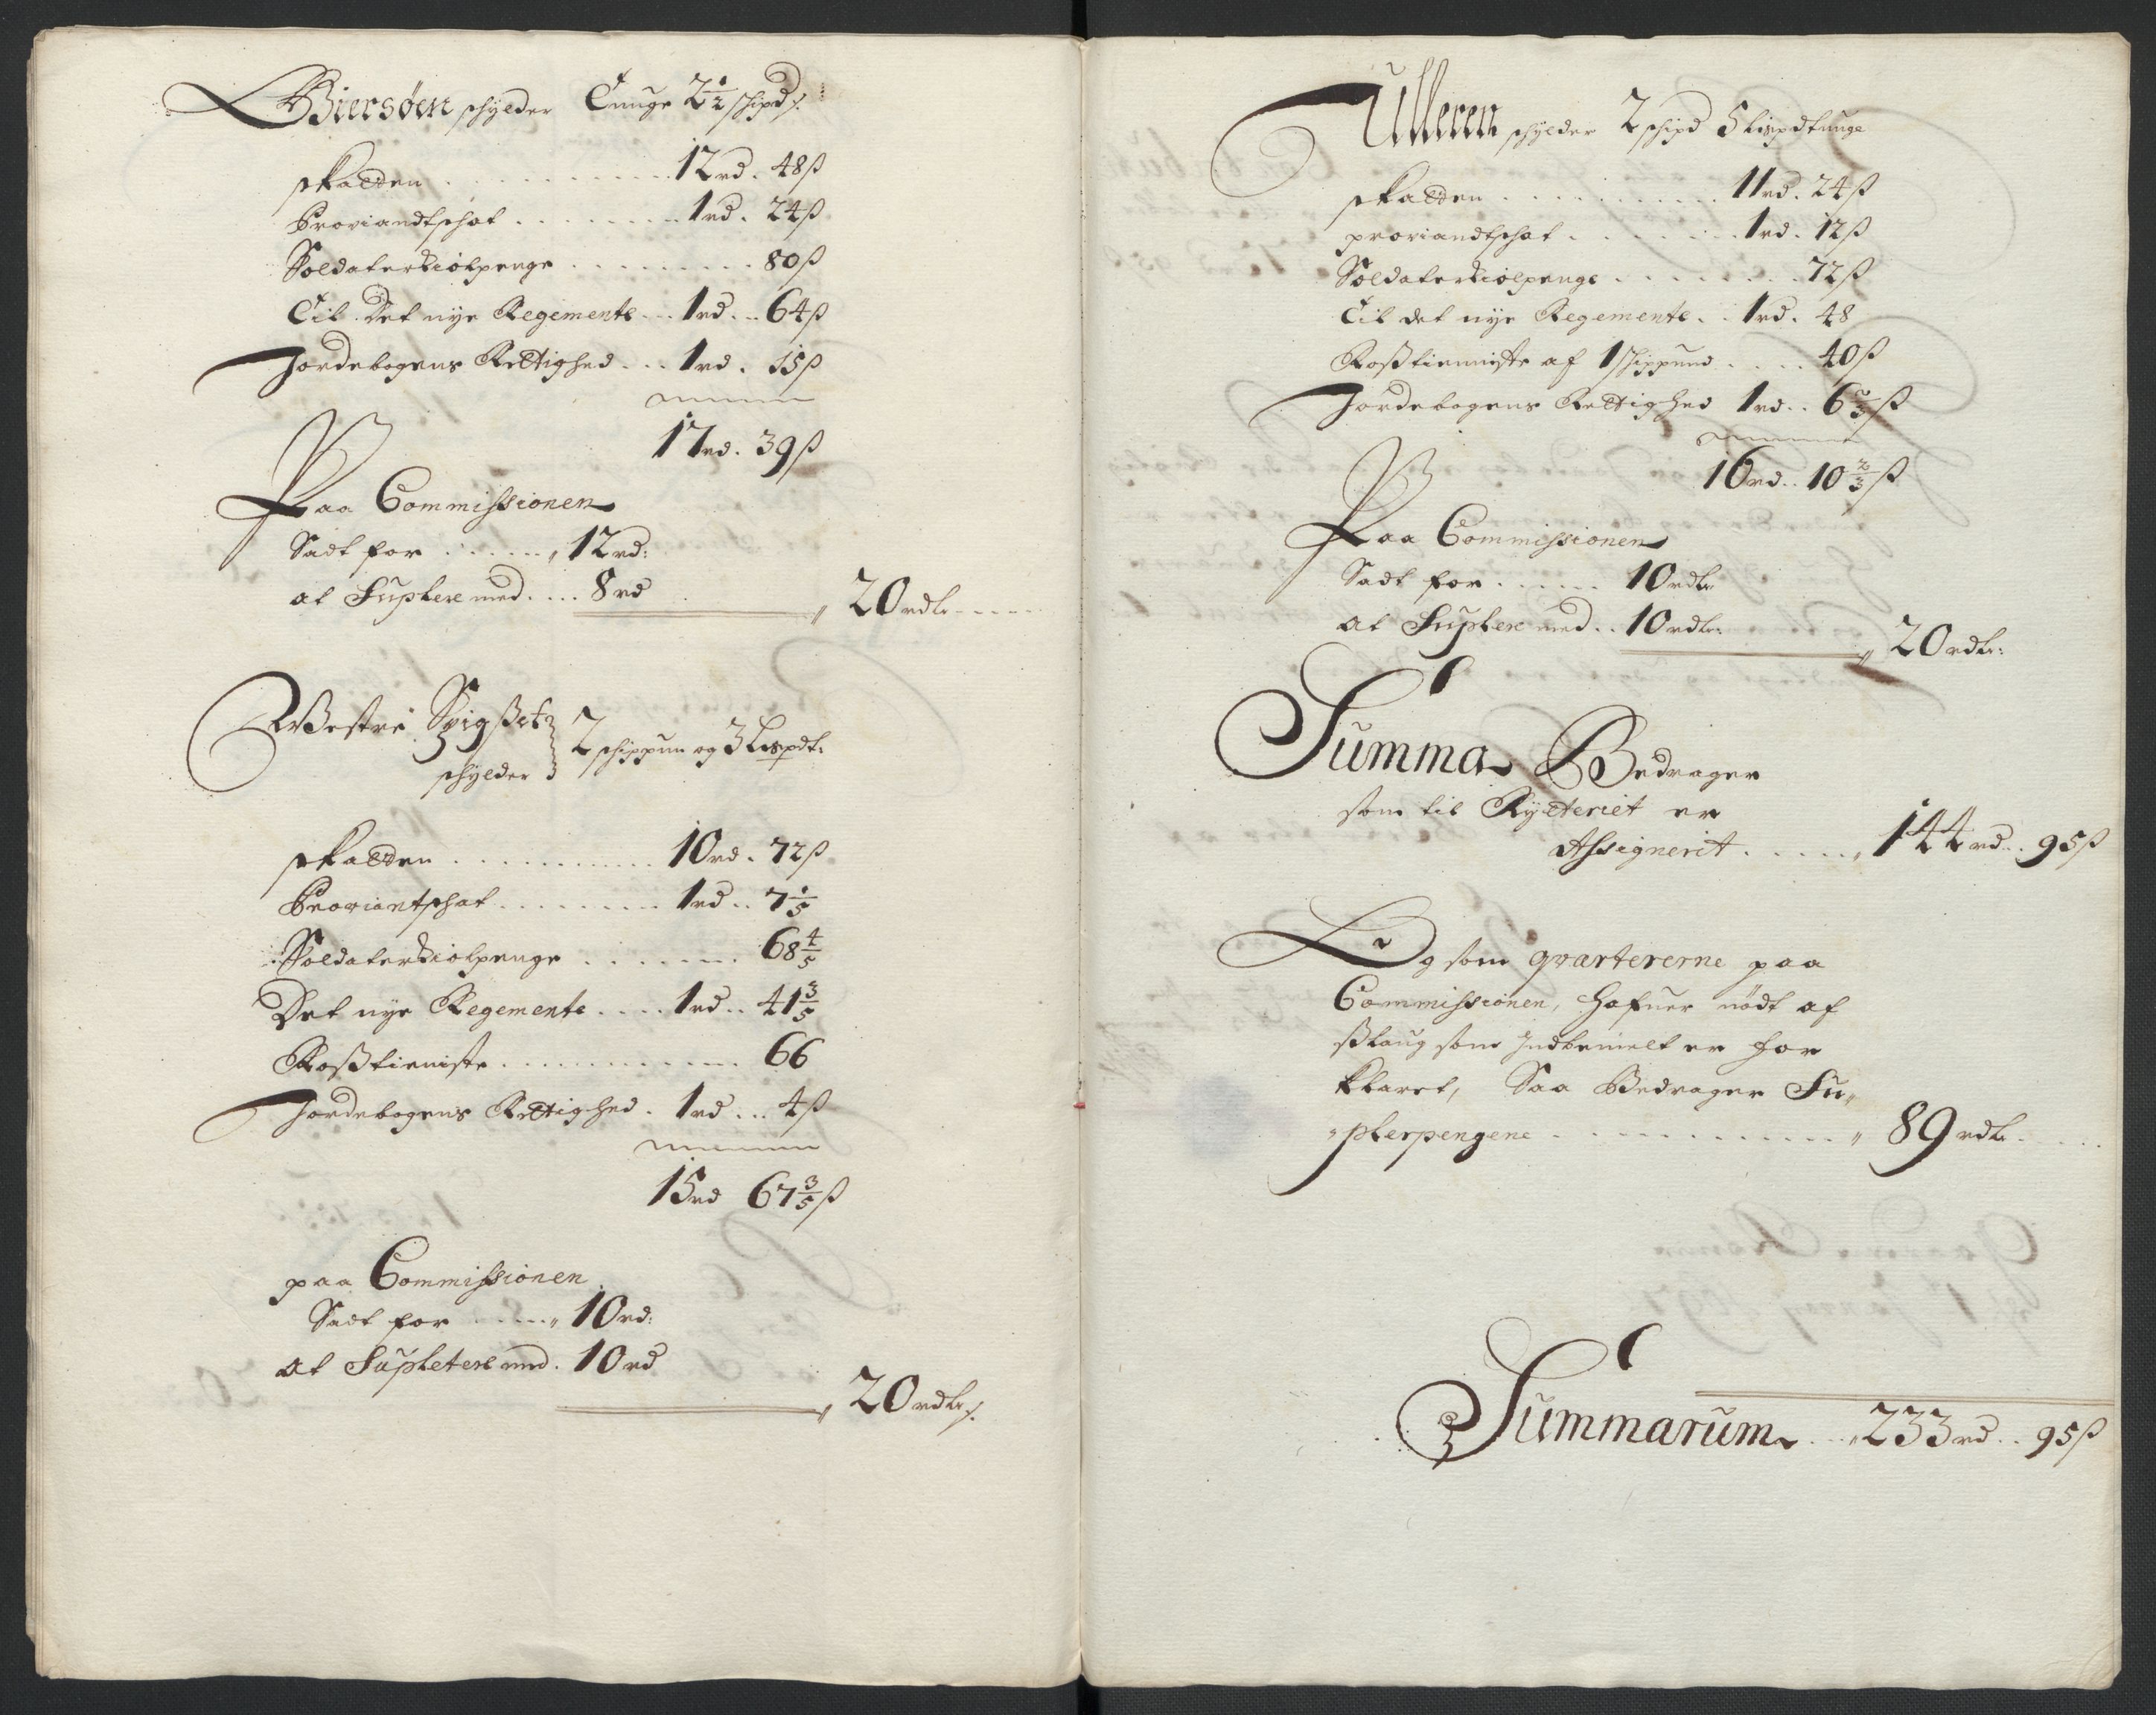 Biersøen schylder Tunge 2 1/2 schipd⁒
skatten . . . . . . . . . . . 12 rd. 48 ß
Proviandtschat . . . . . . . . 1 rd. 24 ß
Soldaterkiolpenge . . . . . . . . . 80 ß
Til Det nye Regemente . . . 1 rd. . . 64 ß
Jordebogens Rettighed . . . 1 rd. 15 ß
17 rd. 39 ß
Paa Commissionen
Sadt for . . . . . 12 rd:
at Suplere med . . . . 8 rd
20 rdlr
Westre
schylder 2 schippun og 3 Lispdt:
skatten . . . . . . . . . . . 10 rd. 72 ß
Proviantschat . . . . . . . . . 1 rd. . 7 1/5
Soldaterkiolpenge . . . . . . . . 68 4/5
Det nye Regemente . . . . 1 rd. . 41 3/5
Roßtieniste . . . . . . . . . . . . 66
Jordebogens Rettighed . 1 rd . . . 4 ß
15 rd 67 3/5 ß
paa Commissionen
Sadt for . . . . . 10 rd:
at Supletere med . 10 rd
20 rdlr⁒
Ulleren schylder 2 schipd 5 Lispd tunge
skatten . . . . . . . . . . 11 rd. 24 ß
proviandtschat . . . . . . . 1 rd. 12 ß
Soldaterkiolpenge . . . . . . . . 72 ß
Til det nye Regemente . . 1 rd. 48
Roßtienniste af 1 schippund . . . . 40 ß
Jordebogens Rettighed 1 rd. . 6 2/3 ß
16 rd. . 10 2/3 ß
Paa Commissionen
Sadt for . . . . . 10 rdlr
at Suplere med . . 10 rdlr:
20 rdlr:
Summa Bedrager
som til Rytteriet er
Assignerit . . . . . 144 rd. . 95 ß
Og som qvartererne paa
Commissionen, hafuer nødt af
ßlaug som Indbemelt er for
klaret, Saa Bedrager Su„
„plerpengene . . . . . . . . . . . . 89 rdlr . . . .
Summarum . . 233 rd . . 95 ß